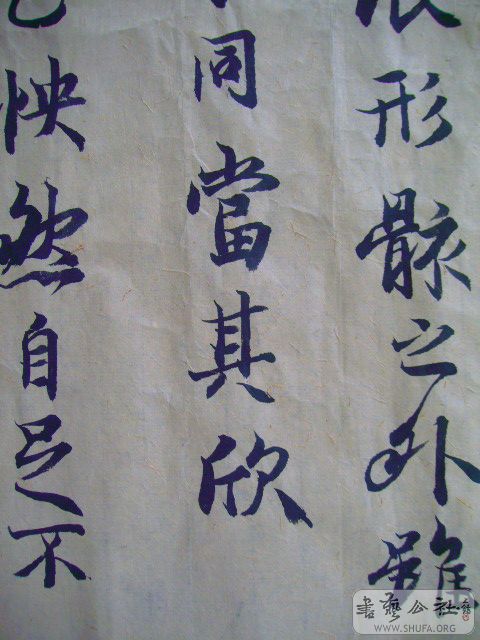 形骸之外雖
同當其欣
怏然自足不
書藝公社
WWW.SHUFA.ORG